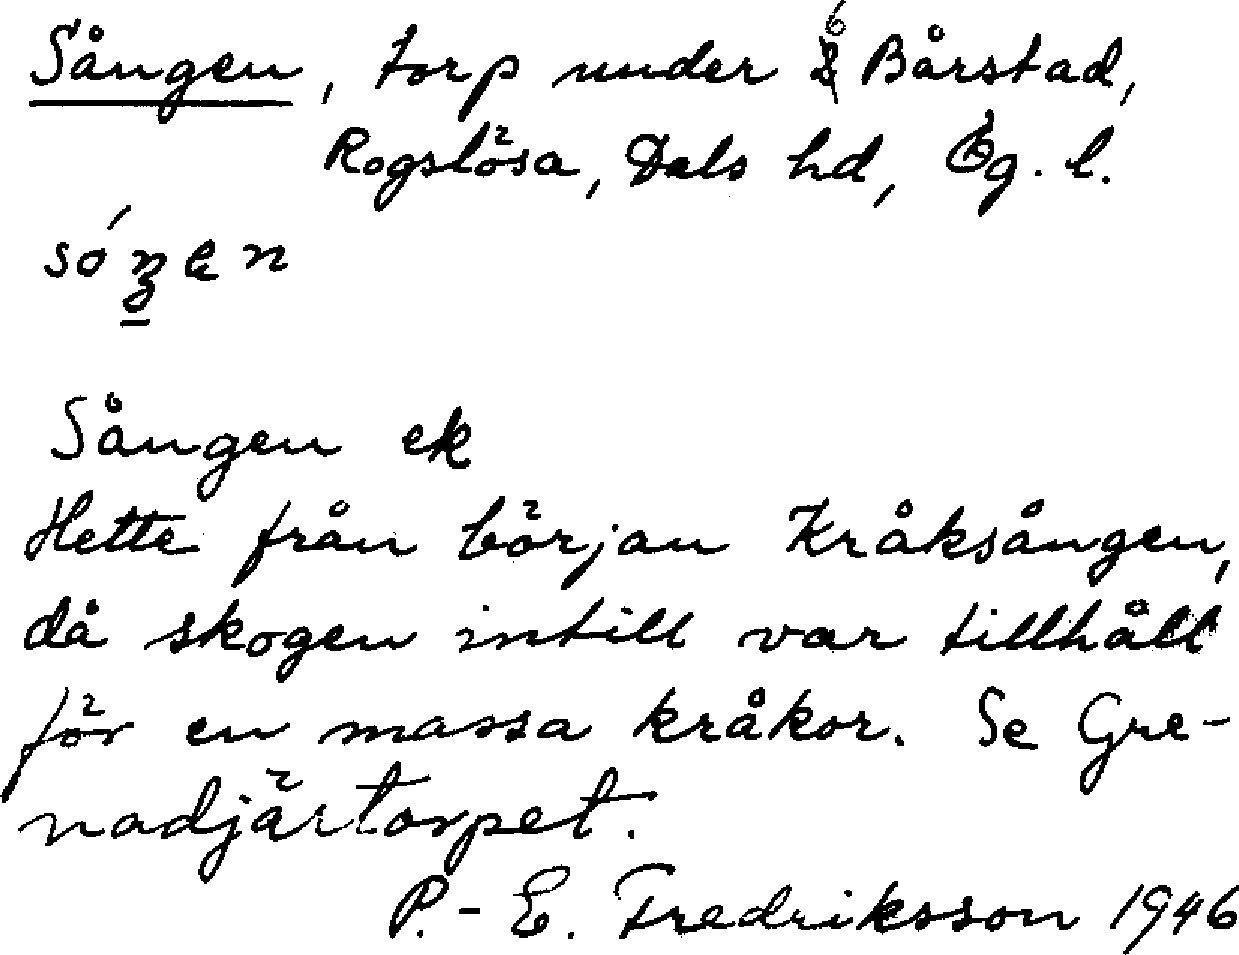 Sången, torp under 6 Bårstad,
Rogslösa, Dals hd, Ög. l.
Sången ek
Hette från början Kråksången,
då skogen intill var tillhåll
för en massa kråkor. Se Gre-
nadjärtorpet.
P.-E. Fredriksson 1946